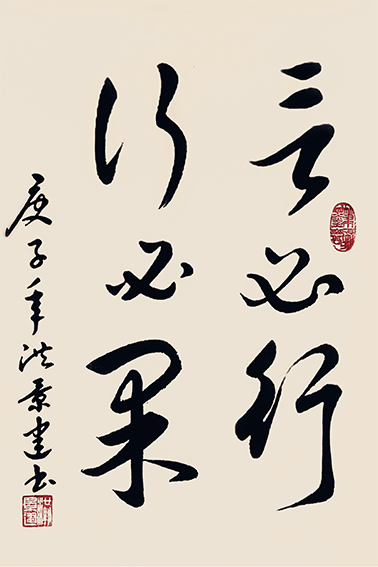 言必行
行必果
庚子年洪景建书